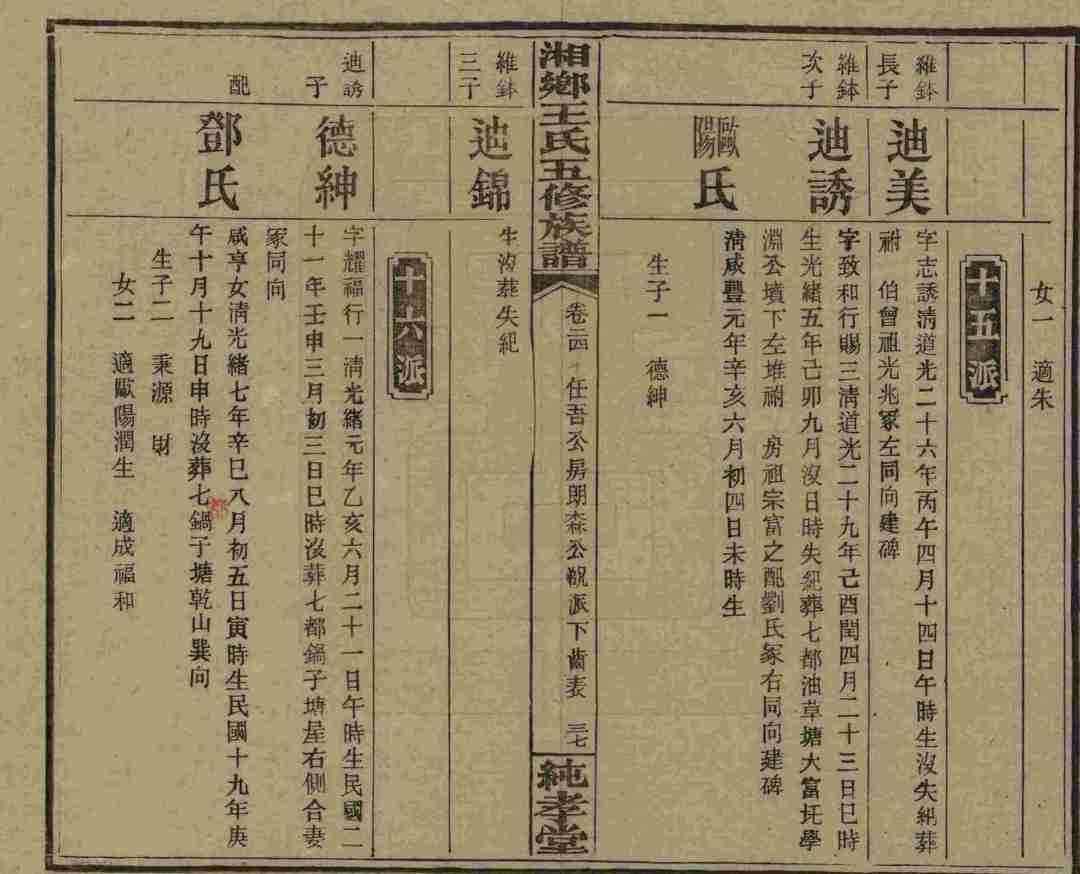 女一 適朱
十五派
維鉢長子
迪美
字志誘清道光二十六年丙午四月十四日午時生沒失紀葬
祔 伯曾祖光兆冢左同向建碑
維鉢次子
迪誘
字致和行賜三清道光二十九年己酉閏四月二十三日巳時
生光緒五年己卯九月沒日時失紀葬七都油草塘大富圫學
淵公墳下左堆祔 房祖宗富之配劉氏冢右同向建碑
歐陽氏
清咸豐元年辛亥六月初四日未時生
生子一 德紳
湘鄉王氏五修族譜
卷二四 任吾公房朗森公派下齒表 三七
純孝堂
維鉢三子
迪錦
生沒葬失紀
十六派
迪誘子
德紳
字耀福行一清光緒元年乙亥六月二十一日午時生民國二
十一年壬申三月初三日巳時沒葬七都鍋子塘屋右側合妻
冢同向
配
鄧氏
咸亨女清光緒七年辛巳八月初五日寅時生民國十九年庚
午十月十九日申時沒葬七鍋子塘乾山巽向
都
生子二 秉源 財
女二 適歐陽潤生 適成福和